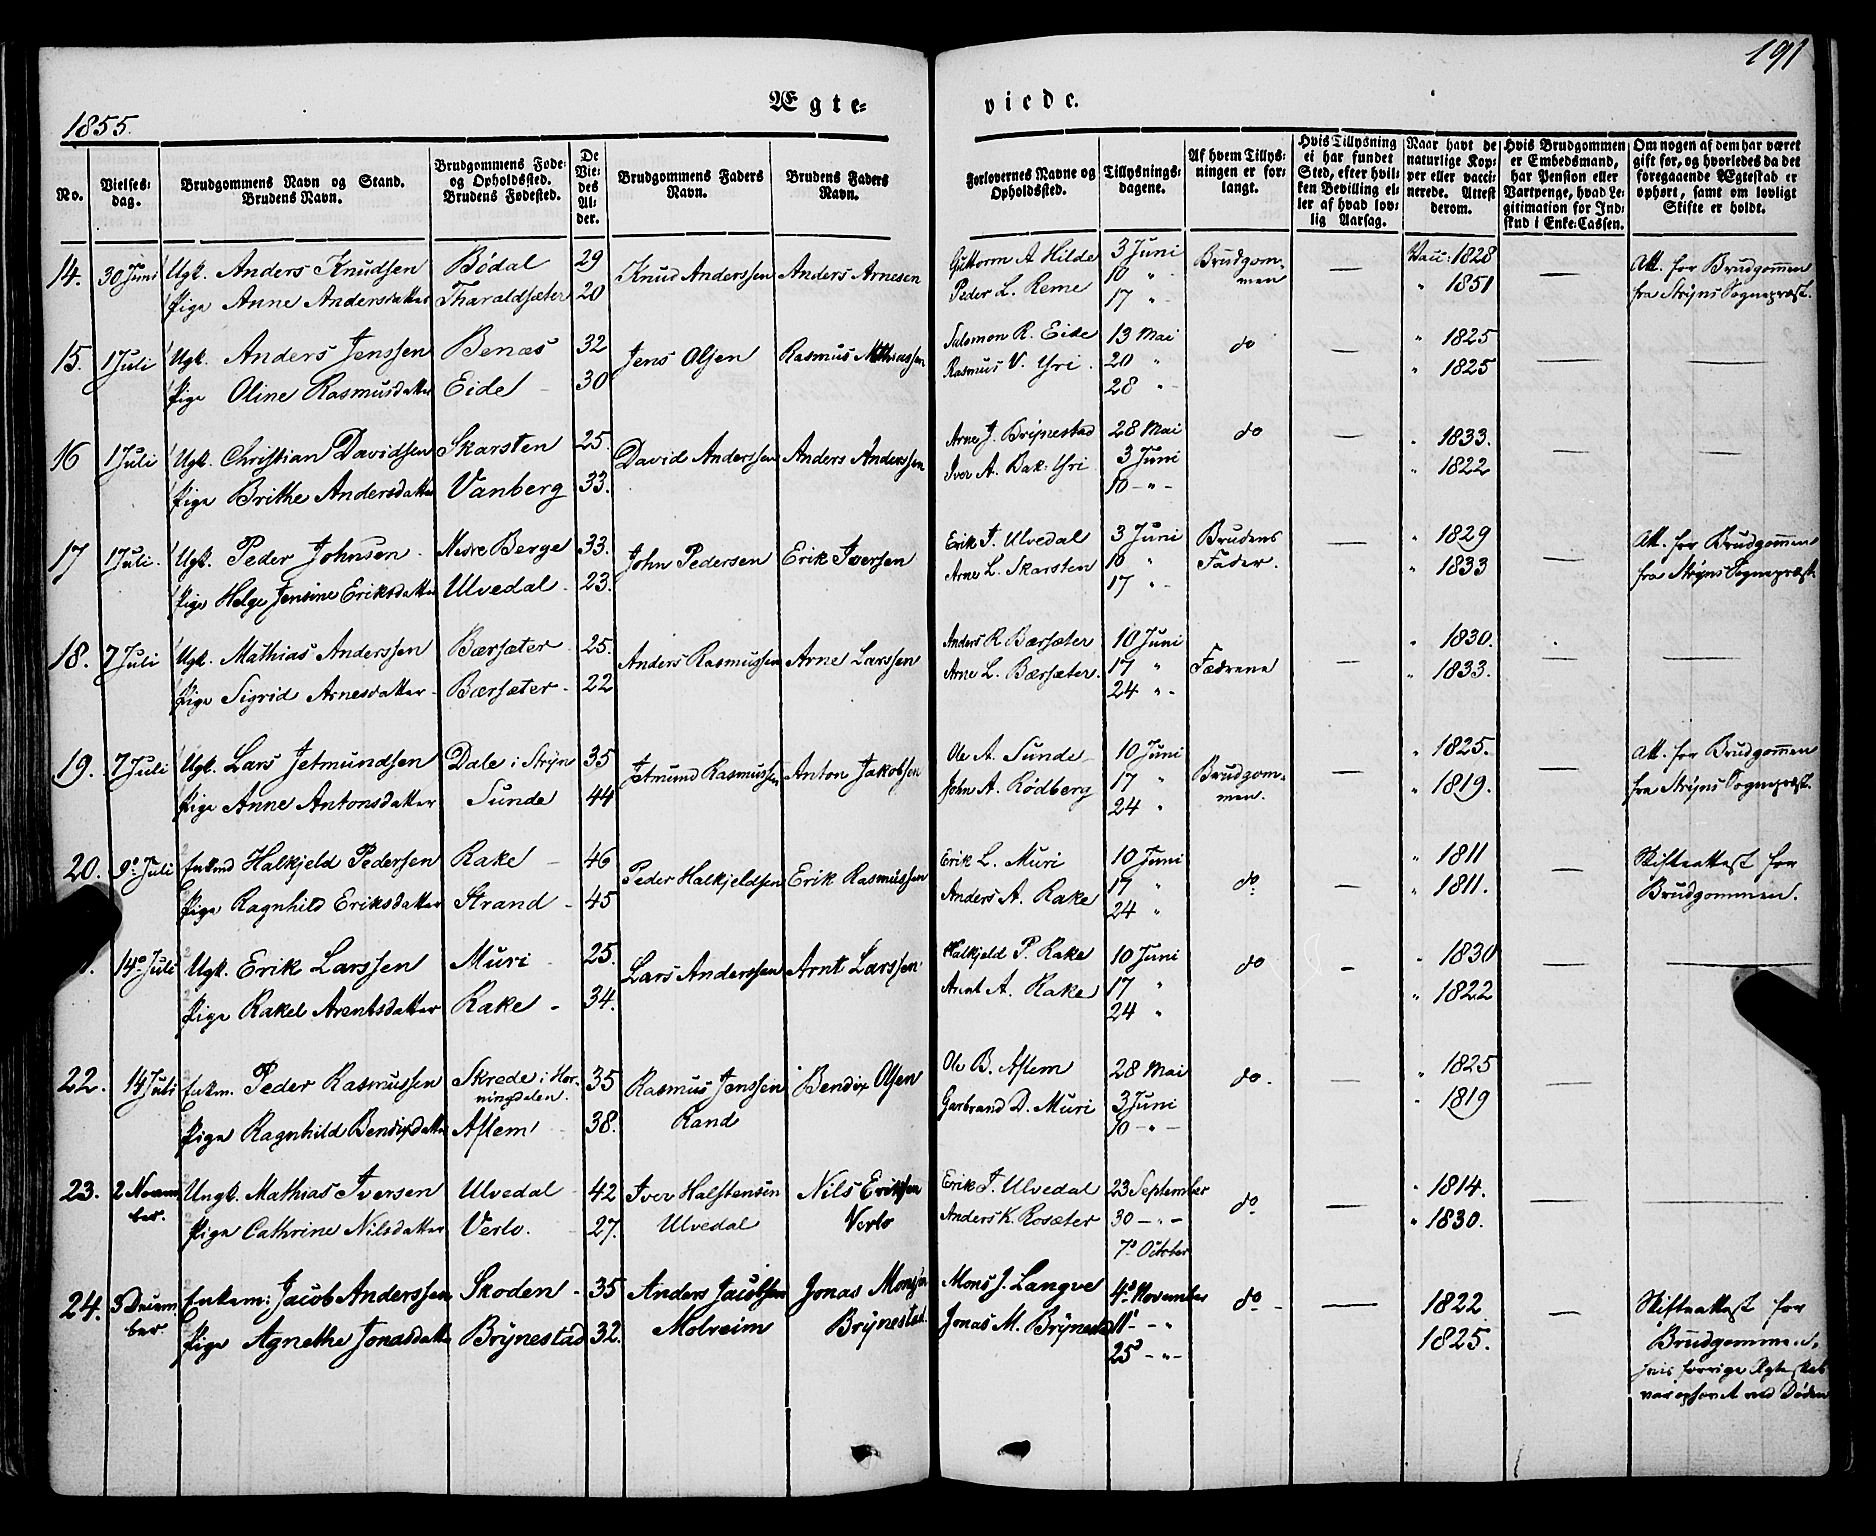 191
1855.
Ægte=
viede.
No.
Vielses=
dag.
Brudgommens Navn og Stand.
Brudens Navn.
Brudgommens Føde=
og Opholdssted.
Brudens Fødested.
De
Vie=
des
Al=
der.
Brudgommens Faders
Navn.
Brudens Faders
Navn.
Forlovernes Navne og
Opholdssted.
Tillysnings=
dagene.
Af hvem Tillys=
ningen er for=
langt.
Hvis Tillysning
ei har fundet
Sted, efter hvil=
ken Bevilling el=
ler af hvad lov=
lig Aarsag.
Naar havt de
naturlige Kop=
per eller vacci=
nerede. Attest
derom.
Hvis Brudgommen
er Embedsmand,
har Pension eller
Vartpenge, hvad Le=
gitimation for Ind=
skud i Enke=Cassen.
Om nogen af dem har været
gift før, og hvorledes da det
foregaaende Ægtestad er
ophørt, samt om lovligt
Skifte er holdt.
14. 30 Juni Ugk. Anders Knudsen Bødal 29 Knud Anderssen Anders Arnesen Guttorm A Hilde 3 Juni Brudgom- — Vacc: 1828 — Att. for Brudgommen
Pige Anne Andersdatter Tharaldsæter 20 Peder L. Reme 10 " men " 1851 fra Stryns Sognepræst.
17 "
15. 1 Juli Ugk. Anders Jenssen Benæs 32 Jens Olsen Rasmus Mathiassen Salomon R. Eide 13 Mai do — " 1825 —
Pige Oline Rasmusdatter Eide 30 Rasmus V. Yri. 20 " " 1825
28 "
16 1 Juli Ugk. Christian Davidsen Skarsten 25. David Anderssen Anders Anderssen Arne J. Brynestad 28 Mai do — " 1833. —
Pige Brithe Andersdatter Vanberg 33. Iver A. Bak: Yri 3 Juni " 1822
10 - " -
17 1 Juli. Ugk. Peder Johnsen Nedre Berge 33. John Pedersen Erik Iversen Erik I. Ulvedal 3 Juni Brudens " 1829 — Att. for Brudgommen
Pige Helge Jensine Eriksdatter Ulvedal 23. Arne L. Skarsten 10 " Fader. " 1833 fra Stryns Sognepræst
17 "
18. 7 Juli Ugk. Mathias Anderssen Bærsæter 25. Anders Rasmussen Arne Larssen Anders R. Bærsæter 10 Juni Fædrene — " 1830. —
Pige Sigrid Arnesdatter Bærsæter 22 Arne L. Bærsæter. 17 " " 1833.
24 "
19. 7 Juli Ugk. Lars Jetmundsen Dale i Stryn 35 Jetmund Rasmussen Anton Jakobsen Ole A. Sunde 10 Juni Brudgom- — " 1825. — Att. for Brudgommen
Pige Anne Antonsdatter Sunde 44 John A. Rødberg 17 " men. " 1819. fra Stryns Sognepræst.
24 "
20. 9. Juli Enkmd Halkjeld Pedersen Rake 46 Peder Halkjeldsen Erik Rasmussen Erik L. Muri 10 Juni do — " 1811 — Skifteattest for
Pige Ragnhild Eriksdatter Strand 45 Anders A. Rake 17 " " 1811. Brudgommen.
24 "
14. Juli Ugk. Erik Larssen Muri 25. Lars Anderssen Arnt Larssen Halkjeld P. Rake 10 Juni do — " 1830 —
Pige Rakel Arentsdatter Rake 34. Arent A. Rake 17 " " 1822
24 "
22. 14 Juli Enkm. Peder Rasmussen Skrede i Hor- 35 Rasmus Jenssen Bendix Olsen Ole B. Aflem 28 Mai do. — " 1825 —
ningdalen.
Pige Ragnhild Bendixdatter Aflem 38. Rand Garbrand D. Muri 3 Juni " 1819
10 - " -
23. 2 Novem- Ungk. Mathias Iversen Ulvedal 42 Iver Halstensen Nils Eriksen Erik I. Ulvedal 23 September do — " 1814. —
ber. Pige Cathrine Nilsdatter Verlo. 27. Ulvedal Verlo Anders K. Rosæter 30 - " - " 1830.
7. October
24. 3 Decem- Enkem: Jacob Anderssen Skoden 35 Anders Jacobsen Jonas Monssen Mons J. Langve 4. November do — 1822 — Skifteattest for
ber. Pige Agnethe Jonasdatter Brynestad 32. Molreim Brynestad. Jonas M. Brynestad 11 - " 1825. Brudgommen,
25 - " - hvis forrige Ægteskab
var ophørt ved Døden